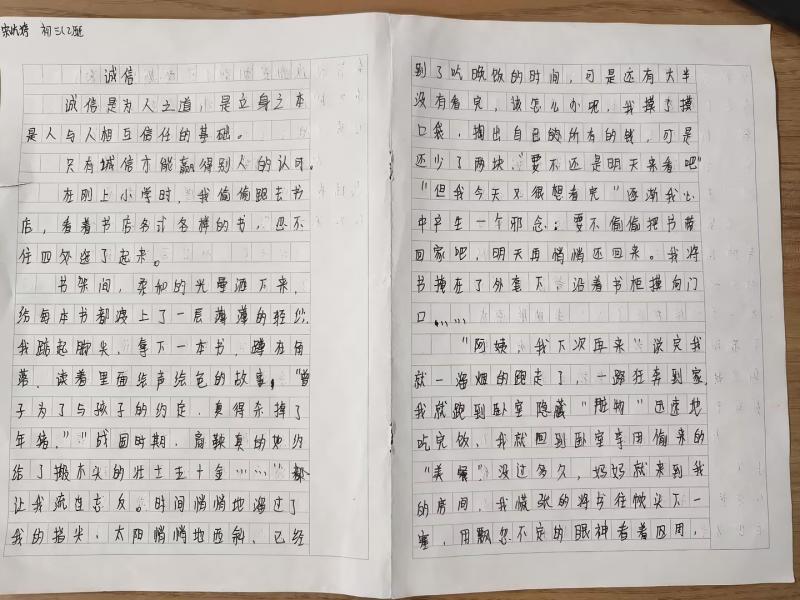 初三(2)班
诚信
诚信是为人之道，是立身之本
是人与人相互信任的基础。
只有诚信才能赢得别人的认可。
在刚上小学时，我偷偷跑去书
店，看着书店各式各样的书，忍不
住四处逛了起来。
书架间，柔和的光晕洒下来，
给每本书都渡上了一层薄薄的轻纱
我踮起脚尖，拿下一本书，蹲在角
落，读着里面绘声绘色的故事，"曾
子为了与孩子的约定，真得杀掉了
年猪。""战国时期，商鞅真的如约
给了搬木头的壮士五十金……"都
让我流连忘反。时间悄悄地溜过了
我的指尖，太阳悄悄地西斜，已经
到了吃晚饭的时间，可是还有大半
没有看完，该怎么办呢，我摸了摸
口袋，掏出自己的所有的钱，可是
还少了两块。"要不还是明天来看吧"
"但我今天又很想看完"逐渐我心
中产生一个邪念：要不偷偷把书带
回家吧，明天再悄悄还回来。我将
书掩在了外套下，沿着书柜摸向门
口……
"阿姨，我下次再来"说完我
就一溜烟的跑走了，一路狂奔到家
我就跑到卧室隐藏"赃物"迅速地
吃完饭，我就回到卧室享用偷来的
"美餐"没过多久，妈妈就来到我
的房间，我慌张的将书往枕头下一
塞，用飘忽不定的眼神看着四周，